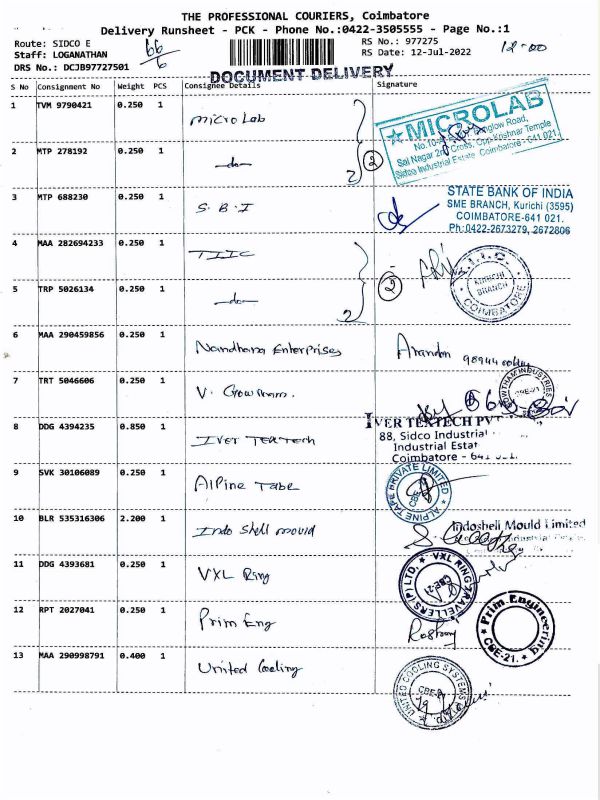 THE PROFESSIONAL COURIERS, Coimbatore
Delivery Runsheet - PCK - Phone No.:0422-3505555 - Page No.:1
Route: SIDCO E
RS No.: 977275
12-00
Staff: LOGANATHAN
RS Date: 12-Jul-2022
DRS No.: DCJB97727501
66/6
DOCUMENT DELIVERY
S No Consignment No Weight PCS Consignee Details Signature
1 TVM 9790421 0.250 1 Micro Lab
MICROLAB
Sai Nagar 2nd Cross, Opp-Krishnar Temple
Sidco Industrial Estate Coimbatore - 641 021.
2 MTP 278192 0.250 1 —do— 2
3 MTP 688230 0.250 1 S.B.I
STATE BANK OF INDIA
SME BRANCH, Kurichi (3595)
COIMBATORE-641 021.
Ph:0422-2673279, 2672806
4 MAA 282694233 0.250 1 TIIC
T.I.I.C.
KURICHI
BRANCH
COIMBATORE
5 TRP 5026134 0.250 1 —do— 2
6 MAA 290459856 0.250 1 Nandhana Enterprises
7 TRT 5046606 0.250 1 V. Gowtham.
GOWTHAM INDUSTRIES
CBE-21
8 DDG 4394235 0.850 1 Iver Tektech
IVER TEKTECH PVT
88, Sidco Industrial
Industrial Estat
Coimbatore - 641
9 SVK 30106089 0.250 1 Alpine Tape
ALPINE TAPE PRIVATE LIMITED
CBE
10 BLR 535316306 2.200 1 Indo Shell mould
Indoshell Mould Limited
11 DDG 4393681 0.250 1 VXL Ring
VXL RING TRAVELLERS (P) LTD.
CBE-21
12 RPT 2027041 0.250 1 Prim Eng
Prim Engineering
CBE-21.
13 MAA 290998791 0.400 1 United Cooling
UNITED COOLING SYSTEMS
CBE-2